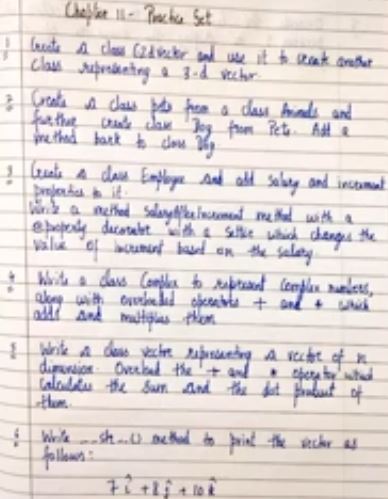 Chapter 11 - Practice Set
1 Create a class C2dvector and use it to create another
class representing a 3-d vector.
2 Create a class pets from a class Animals and
further create class Dog from Pets. Add a
method bark to class Dog
3 Create a class Employee and add salary and increment
properties to it.
Write a method salaryAfterIncrement method with a
@property decorator with a setter which changes the
value of increment based on the salary
4 Write a class Complex to represent complex numbers,
along with overloaded operators + and * which
adds and multiplies them
5 Write a class vector representing a vector of n
dimension. Overload the + and * operator which
calculates the sum and the dot product of
them.
6 Write __str__() method to print the vector as
follows:
7 î + 8 ĵ + 10 k̂